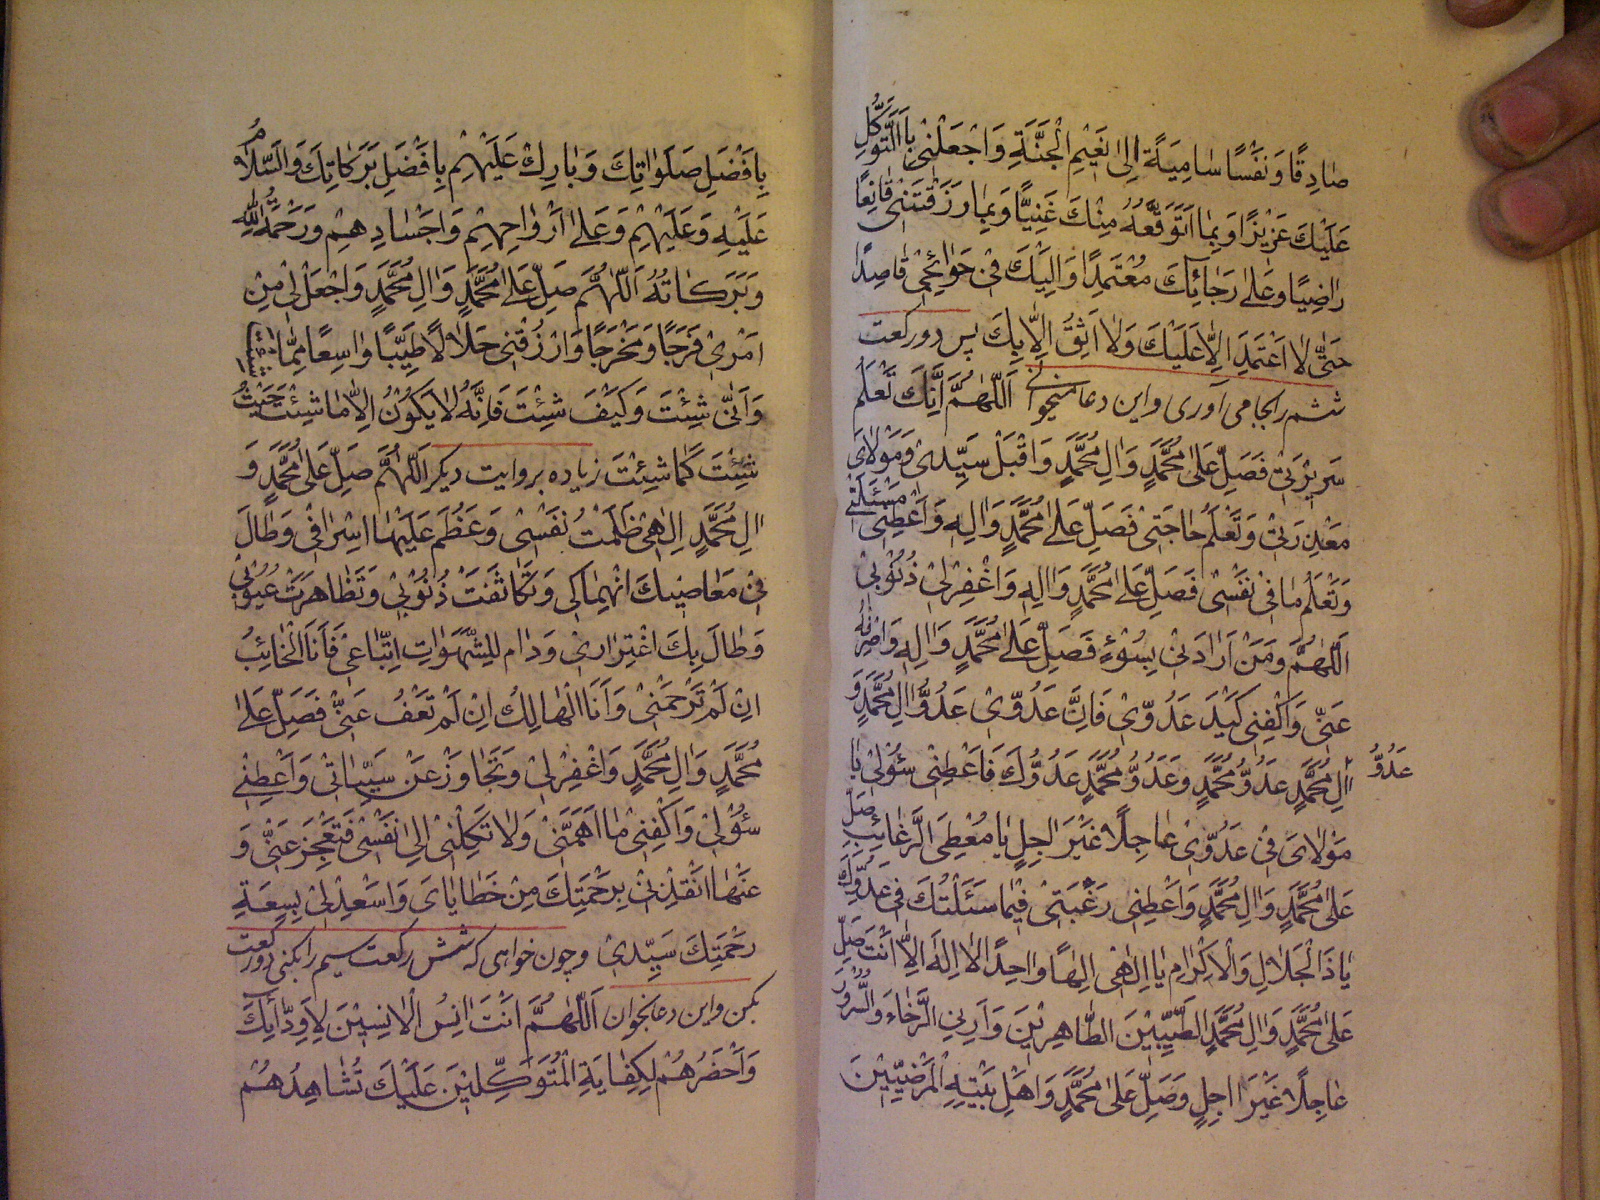 صادِقًا وَنَفْسًا سامِيَةً اِلىٰ نَعيْمِ الْجَنَّةِ وَاجْعَلْنىْ بِالتَّوَكُّلِ
عَلَيْكَ عَزيْزًا وَبِما اَتَوَقَّعُهُ مِنْكَ غَنِيًّا وَبِما رَزَقْتَنىْ قانِعًا
راضِيًا وَعَلىٰ رَجائِكَ مُعْتَمِدًا وَاِلَيْكَ فىْ حَوائِجىْ قاصِدًا
حَتّىٰ لا اَعْتَمِدَ اِلّا عَلَيْكَ وَلا اَثِقُ اِلّا بِكَ پس دو ركعت
ششم را بجا مى آورى و اين دعا ميخوانى اَللّٰهُمَّ اِنَّكَ تَعْلَمُ
سَريْرَتىْ فَصَلِّ عَلىٰ مُحَمَّدٍ وَاٰلِ مُحَمَّدٍ وَاقْبَلْ سَيِّدىْ وَمَوْلاىَ
مَعْذِرَتىْ وَتَعْلَمُ حاجَتىْ فَصَلِّ عَلىٰ مُحَمَّدٍ وَاٰلِهِ وَاَعْطِنىْ مَسْئَلَتىْ
وَتَعْلَمُ ما فىْ نَفْسىْ فَصَلِّ عَلىٰ مُحَمَّدٍ وَاٰلِهِ وَاغْفِرْلىْ ذُنُوْبىْ
اَللّٰهُمَّ وَمَنْ اَرادَنىْ بِسُوْءٍ فَصَلِّ عَلىٰ مُحَمَّدٍ وَاٰلِهِ وَاصْرِفْهُ
عَنّىْ وَاكْفِنىْ كَيْدَ عَدُوّىْ فَاِنَّ عَدُوّىْ عَدُوُّ اٰلِ مُحَمَّدٍ وَ
عَدُوُّ
اٰلِ مُحَمَّدٍ عَدُوُّ مُحَمَّدٍ وَعَدُوُّ مُحَمَّدٍ عَدُوُّكَ فَاَعْطِنىْ سُؤْلىْ يا
مَوْلاىَ فىْ عَدُوّىْ عاجِلًا غَيْرَ اٰجِلٍ يا مُعْطِىَ الرَّغائِبِ صَلِّ
عَلىٰ مُحَمَّدٍ وَاٰلِ مُحَمَّدٍ وَاَعْطِنىْ رَغْبَتىْ فيْما سَئَلْتُكَ فىْ عَدُوِّكَ
يا ذَا الْجَلالِ وَالْاِكْرامِ يا اِلٰهىْ اِلٰهًا واحِدًا لا اِلٰهَ اِلّا اَنْتَ صَلِّ
عَلىٰ مُحَمَّدٍ وَاٰلِ مُحَمَّدٍ الطَّيِّبيْنَ الطّاهِريْنَ وَاَرِنِى الرَّخاءَ وَالسُّرُوْرَ
عاجِلًا غَيْرَ اٰجِلٍ وَصَلِّ عَلىٰ مُحَمَّدٍ وَاَهْلِ بَيْتِهِ الْمَرْضِيّيْنَ
بِاَفْضَلِ صَلَواتِكَ وَبارِكْ عَلَيْهِمْ بِاَفْضَلِ بَرَكاتِكَ وَالسَّلامُ
عَلَيْهِ وَعَلَيْهِمْ وَعَلىٰ اَرْواحِهِمْ وَاَجْسادِهِمْ وَرَحْمَةُ اللّٰهِ
وَبَرَكاتُهُ اَللّٰهُمَّ صَلِّ عَلىٰ مُحَمَّدٍ وَاٰلِ مُحَمَّدٍ وَاجْعَلْ لىْ مِنْ
اَمْرىْ فَرَجًا وَمَخْرَجًا وَارْزُقْنىْ حَلالًا طَيِّبًا واسِعًا مِمّا
وَاَنّىٰ شِئْتَ وَكَيْفَ شِئْتَ فَاِنَّهُ لا يَكُوْنُ اِلّا ما شِئْتَ حَيْثُ
شِئْتَ كَما شِئْتَ زياده بروايت ديكر اَللّٰهُمَّ صَلِّ عَلىٰ مُحَمَّدٍ وَ
اٰلِ مُحَمَّدٍ اِلٰهىْ ظَلَمْتُ نَفْسىْ وَعَظُمَ عَلَيْها اِسْرافىْ وَطالَ
فىْ مَعاصيْكَ انْهِماكىْ وَتَكاثَفَتْ ذُنُوْبىْ وَتَظاهَرَتْ عُيُوْبىْ
وَطالَ بِكَ اغْتِرارىْ وَدامَ لِلشَّهَواتِ اتِّباعىْ فَاَنَا الْخائِبُ
اِنْ لَمْ تَرْحَمْنىْ وَاَنَا الْهالِكُ اِنْ لَمْ تَعْفُ عَنّىْ فَصَلِّ عَلىٰ
مُحَمَّدٍ وَاٰلِ مُحَمَّدٍ وَاغْفِرْلىْ وَتَجاوَزْ عَنْ سَيِّئاتىْ وَاَعْطِنىْ
سُؤْلىْ وَاكْفِنىْ ما اَهَمَّنىْ وَلا تَكِلْنىْ اِلىٰ نَفْسىْ فَتَعْجِزَ عَنّىْ وَ
عَنْها اَنْقِذْنىْ بِرَحْمَتِكَ مِنْ خَطاياىَ وَاَسْعِدْنىْ بِسِعَةِ
رَحْمَتِكَ سَيِّدىْ و چون خواهى كه شش ركعت سيم را بكنى دو ركعت
بكن و اين دعا بخوان اَللّٰهُمَّ اَنْتَ اٰنَسُ الْاٰنِسيْنَ لِاَوِدّائِكَ
وَاَحْضَرُهُمْ لِكِفايَةِ الْمُتَوَكِّليْنَ عَلَيْكَ تُشاهِدُهُمْ